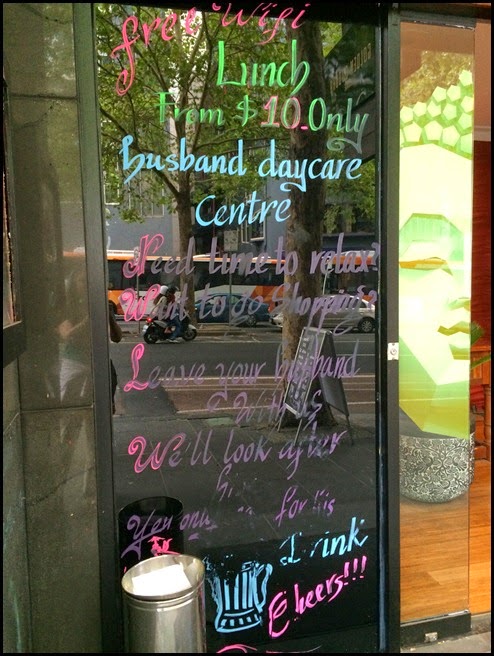 free Wifi
Lunch
From $10.Only
husband daycare
Centre
Need time to relax?
Want to go Shopping?
Leave your husband
With us
We'll look after
for his
Drink
Cheers!!!